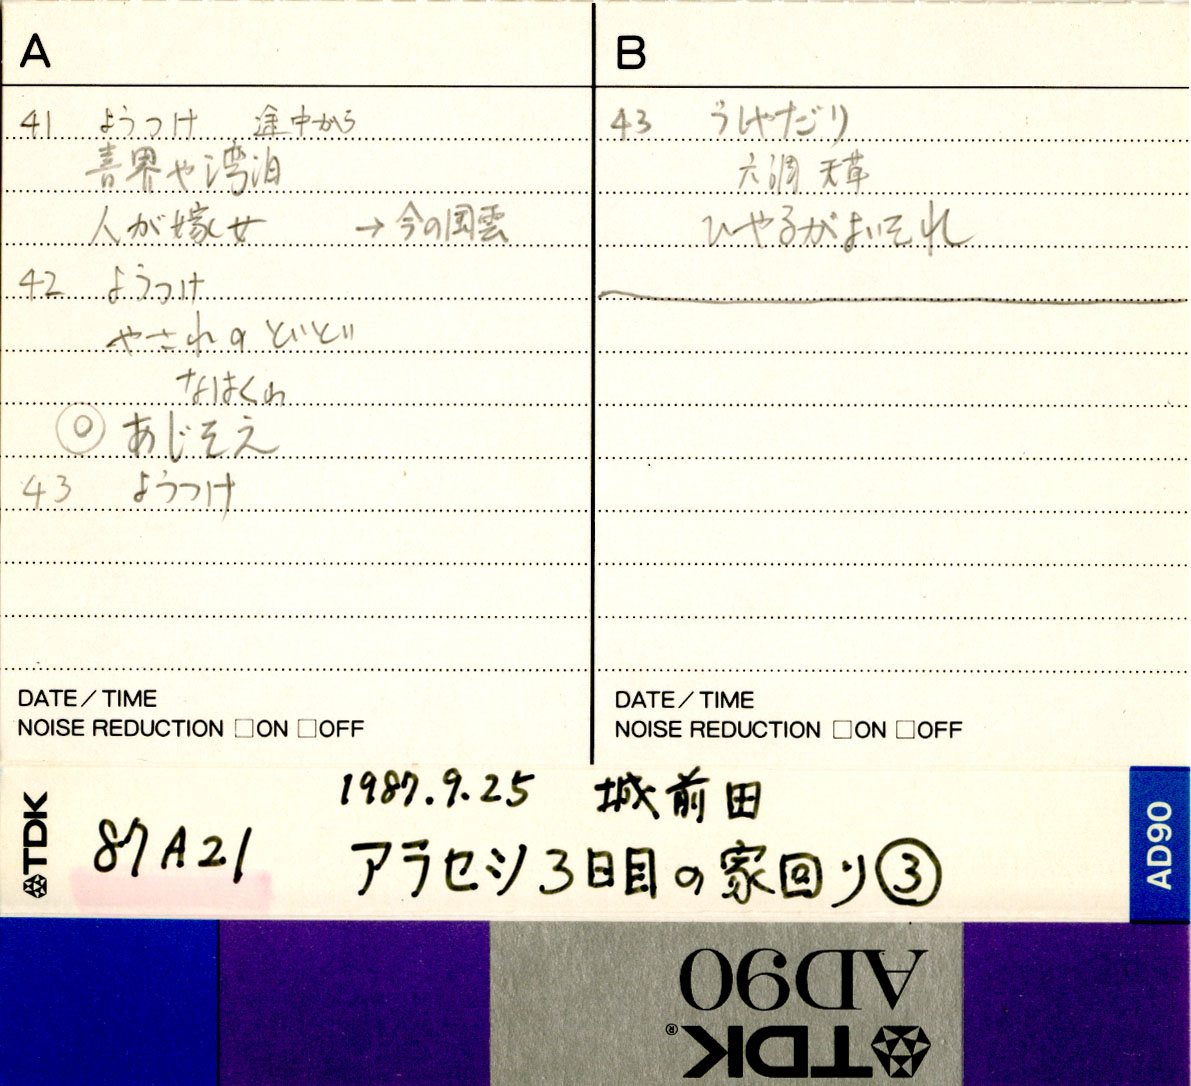 A
41 ようつけ 途中から
喜界や湾泊
人が嫁女 → 今の風雲
42 ようつけ
やされのどいどい
なはくわ
◎ あじそえ
43 ようつけ
DATE/TIME
NOISE REDUCTION □ON □OFF
B
43 うしやだり
六調 天草
ひやるがよいそれ
DATE/TIME
NOISE REDUCTION □ON □OFF
TDK
87A21
1987.9.25 城前田
アラセシ3日目の家回り③
AD90
AD90
TDK®